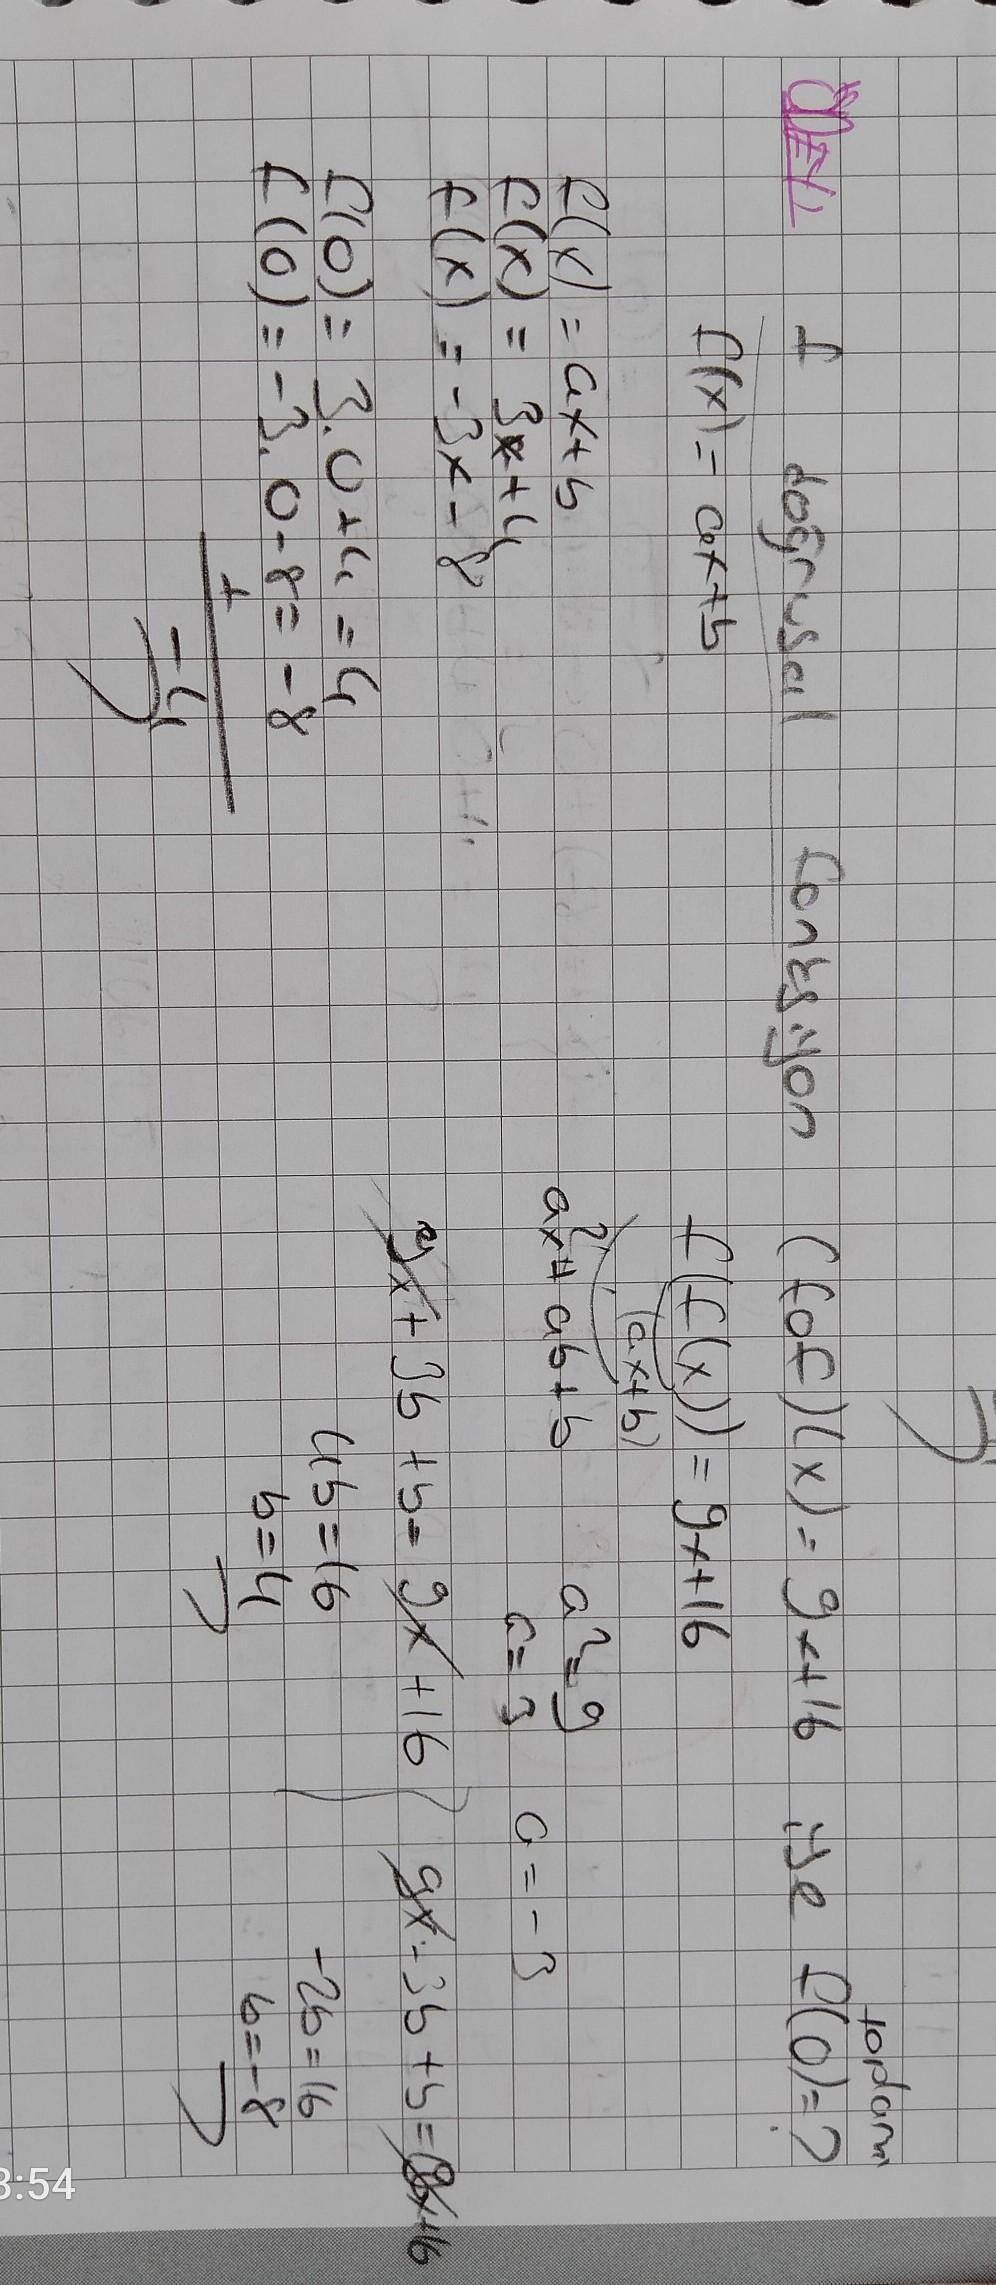 ÖRNEK: f doğrusal fonksiyon (fof)(x) = 9x+16 ise f(0)=?
toplamı
f(x) = ax+b
f(f(x)) = 9x+16
(ax+b)
f(x) = ax+b
f(x) = 3x+4
f(x) = -3x-8
a²x + ab+b
a²=9
a=3
a=-3
9x + 3b +b = 9x +16
4b=16
b=4
9x - 3b +b = 9x+16
-2b=16
b=-8
f(0) = 3.0+4 = 4
f(0) = -3.0-8 = -8
+
-4
3:54